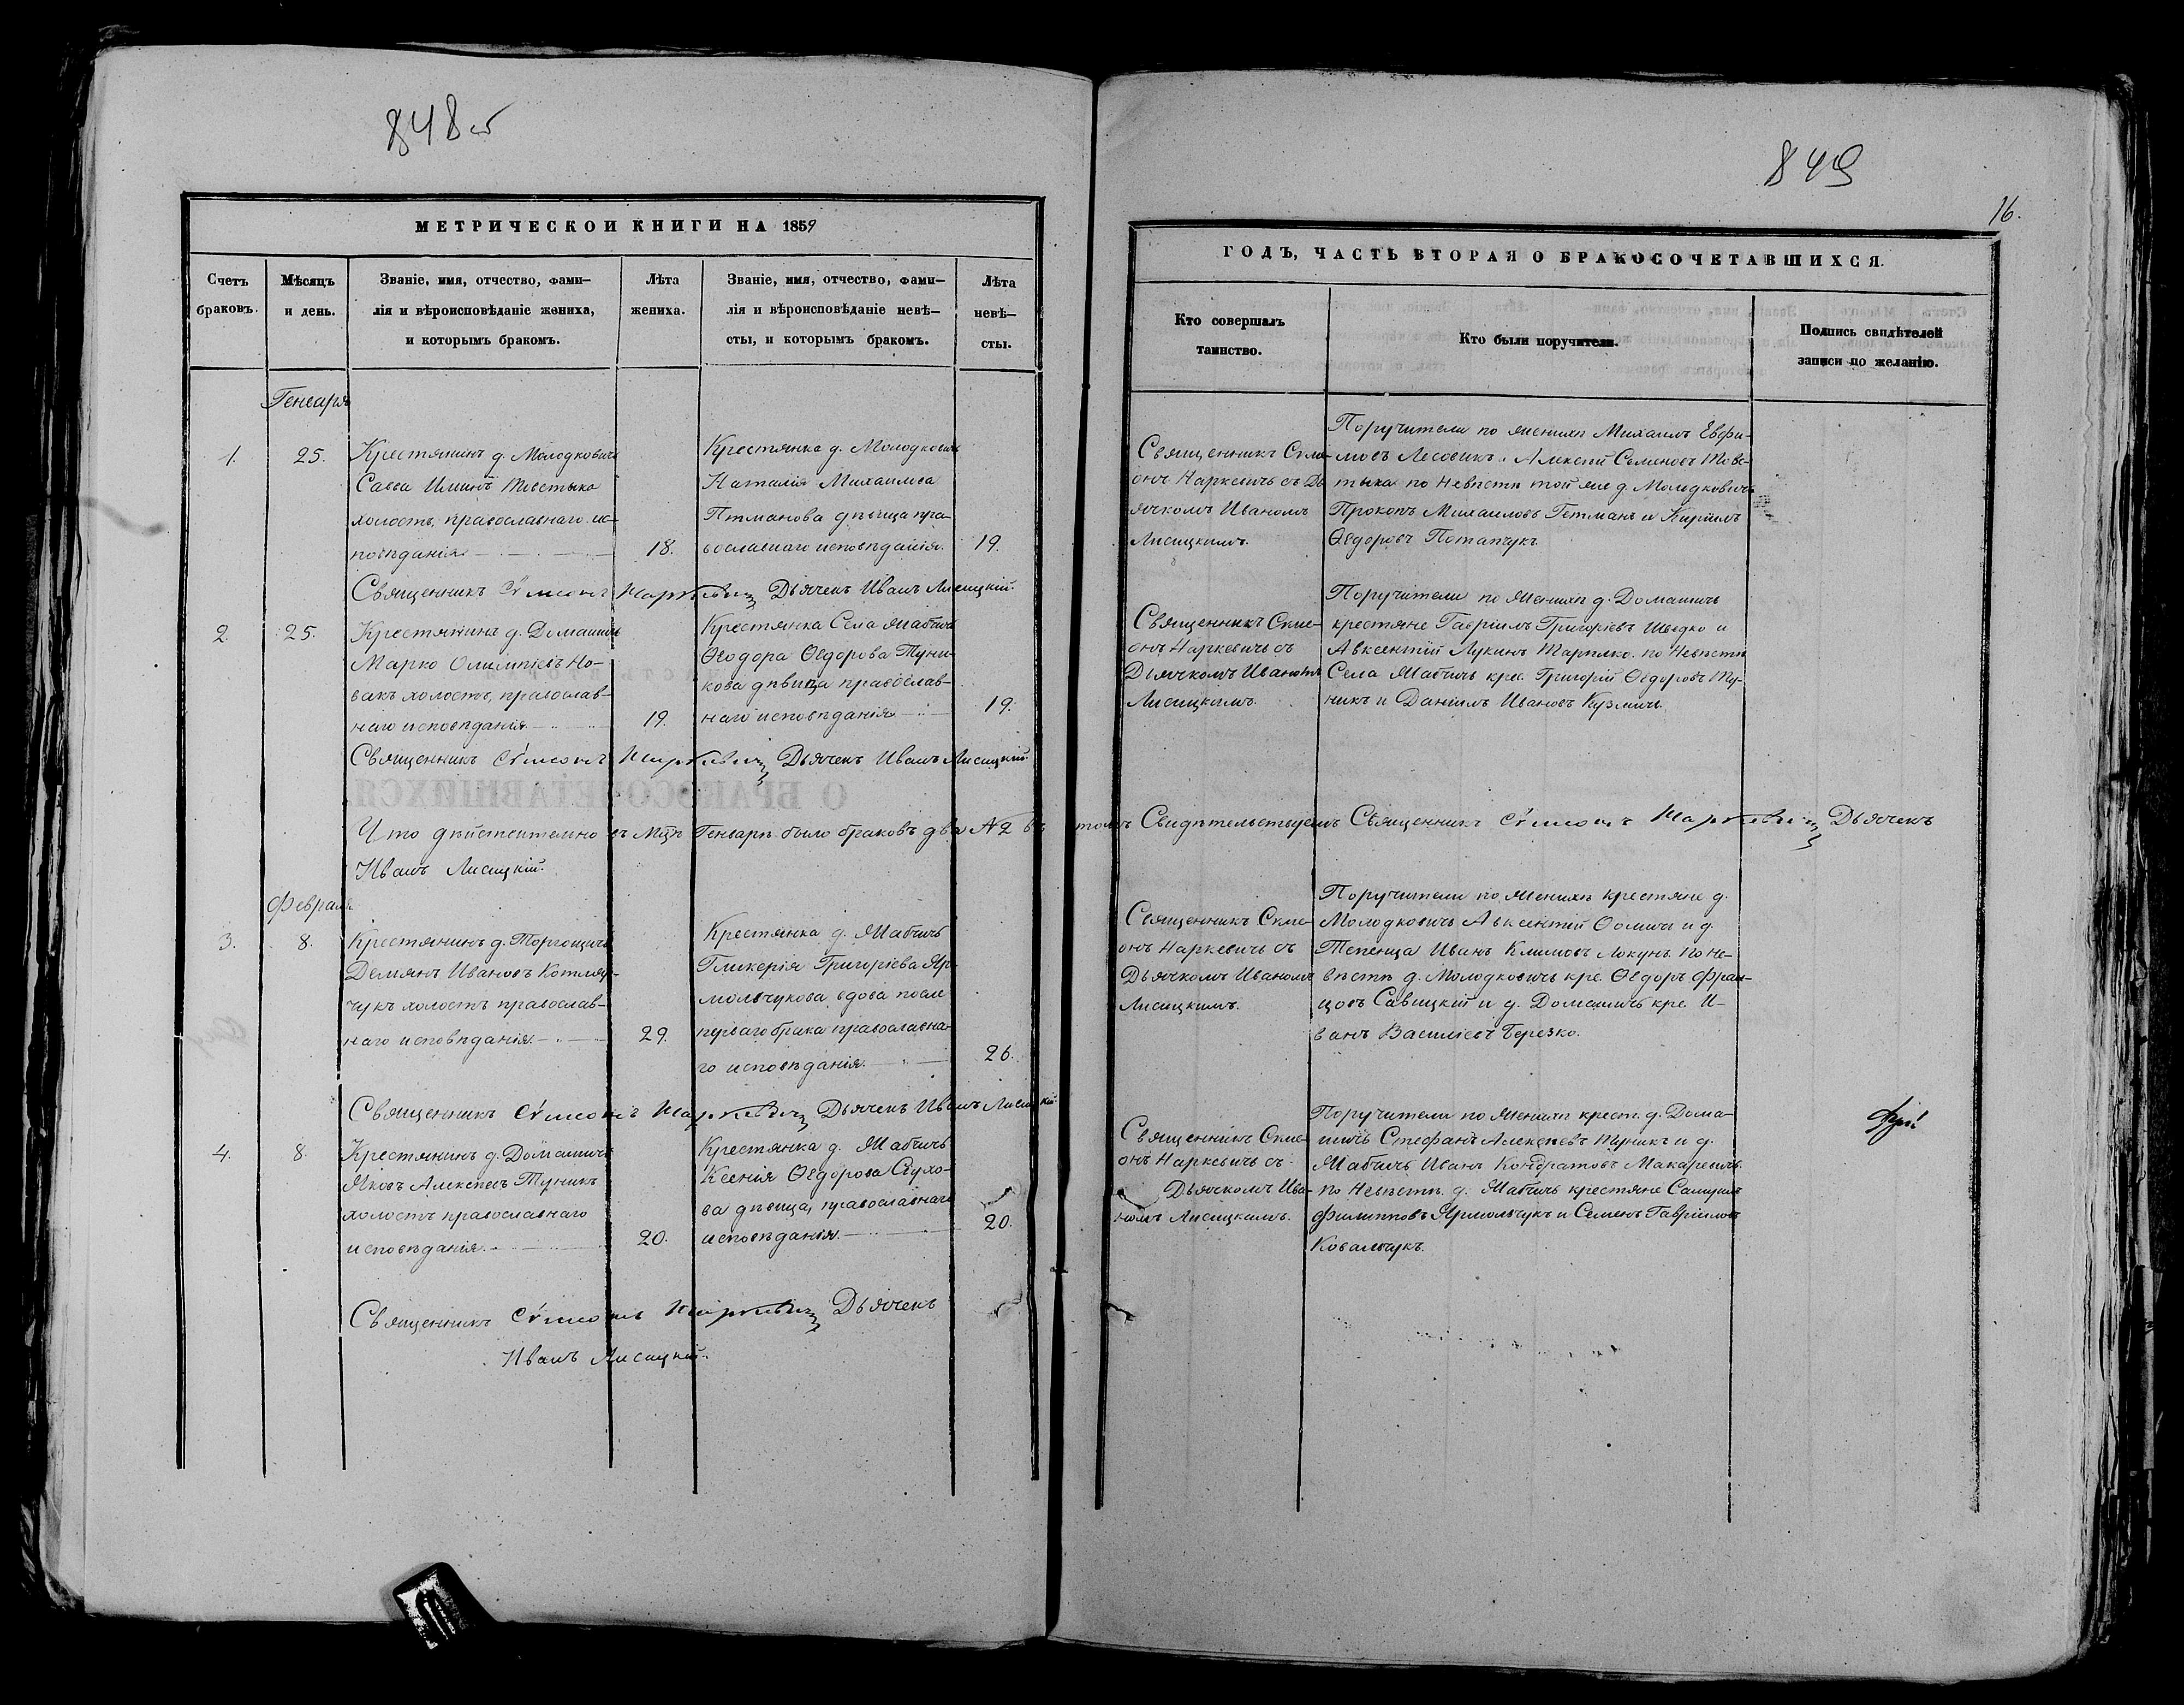 848 об
849
16.
МЕТРИЧЕСКОЙ КНИГИ НА 1859
Счетъ
браковъ.
Мѣсяцъ
и день.
Званіе, имя, отчество, фами–
лія и вѣроисповѣданіе жениха,
и которымъ бракомъ.
Лѣта
жениха.
Званіе, имя, отчество, фами–
лія и вѣроисповѣданіе невѣ–
сты, и которымъ бракомъ.
Лѣта
невѣ–
сты.
ГОДЪ, ЧАСТЬ ВТОРАЯ О БРАКОСОЧЕТАВШИХСЯ.
Кто совершалъ
таинство.
Кто были поручители.
Подпись свидѣтелей
записи по желанію.
Генваря
1.
25.
Крестянинъ д. Молодковичъ
Савва Илiинъ Товстыка
холостъ, православнаго ис-
повѣданія.
18.
Крестянка д. Молодковичъ
Наталія Михаилова
Гетманова дѣвица пра-
вославнаго исповѣданія.
19.
Священникъ Симе-
онъ Наркевичъ съ Дь
ячкомъ Иваномъ
Лисицкимъ.
Поручители по женихѣ Михаилъ Евфи-
мовъ Лесовикъ и Алексій Семеновъ Товс-
тыка по невѣстѣ той же д. Молодковичъ
Прокопъ Михаиловъ Гетманъ и Кирилъ
Ѳедоровъ Потапчукъ
Священникъ Сѵмеонъ Наркевичъ Дьячекъ Иванъ Лисицкій.
2.
25.
Крестянинъ д. Домашичъ
Марко Олимпіевъ Но-
вакъ холостъ, православ-
наго исповѣданія
19.
Крестянка Села Мабичъ
Ѳеодора Ѳедорова Туни-
кова дѣвица православ-
наго исповѣданія
19.
Священникъ Симе-
онъ Наркевичъ съ
Дьячкомъ Иваномъ
Лисицкимъ.
Поручители по женихѣ д. Домашичъ
крестяне Гавріилъ Григоріевъ Шведко и
Авксентій Лукинъ по невѣстѣ
Села Мабичъ крес. Григорій Ѳедоровъ Ту-
никъ и Даніилъ Ивановъ Кузмичъ.
Священникъ Сѵмеонъ Наркевичъ Дьячекъ Иванъ Лисицкій.
Что дѣйствительно въ Мцѣ Генварѣ было браковъ два № 2 въ томъ Свидѣтельствуемъ Священникъ Сѵмеонъ Наркевичъ Дьячекъ
Иванъ Лисицкій.
Февраля
3.
8.
Крестянинъ д. Торгощичъ
Демянъ Ивановъ Котляр-
чукъ холостъ православ-
наго исповѣданія.
29.
Крестянка д. Мабичъ
Гликерія Григоріева Яр-
мольчукова вдова после
перваго брака православна-
го исповѣданія.
26.
Священникъ Симе-
онъ Наркевичъ съ
Дьячкомъ Иваномъ
Лисицкимъ.
Поручители по женихѣ крестяне д.
Молодковичъ Авксентій Ѳомичъ и д.
Тепенца Иванъ Климовъ Локунъ. По не-
вѣстѣ д. Молодковичъ кре. Ѳедоръ Фран-
цовъ Савицкій и д. Домашичъ кре. И-
ванъ Василіевъ Березко.
Священникъ Сѵмеонъ Наркевичъ Дьячекъ Иванъ Лисицкій.
4.
8.
Крестянинъ д. Домашичъ
Яковъ Алексѣевъ Туникъ
холостъ православнаго
исповѣданія.
20.
Крестянка д. Мабичъ
Ксенія Ѳедорова Сухо-
ва дѣвица, православнаго
исповѣданія.
20.
Священникъ Симе-
онъ Наркевичъ съ
Дьячкомъ Ива-
номъ Лисицкимъ.
Поручители по женихѣ крест. д. Дома-
шичъ Стефанъ Алексѣевъ Туникъ и д.
Мабичъ Иванъ Кондратовъ Макаревичъ
по невѣстѣ. д. Мабичъ крестяне Самуилъ
Филипповъ Ярмольчукъ и Семенъ Гавріиловъ
Ковальчукъ.
Священникъ Сѵмеонъ Наркевичъ Дьячекъ
Иванъ Лисицкій.